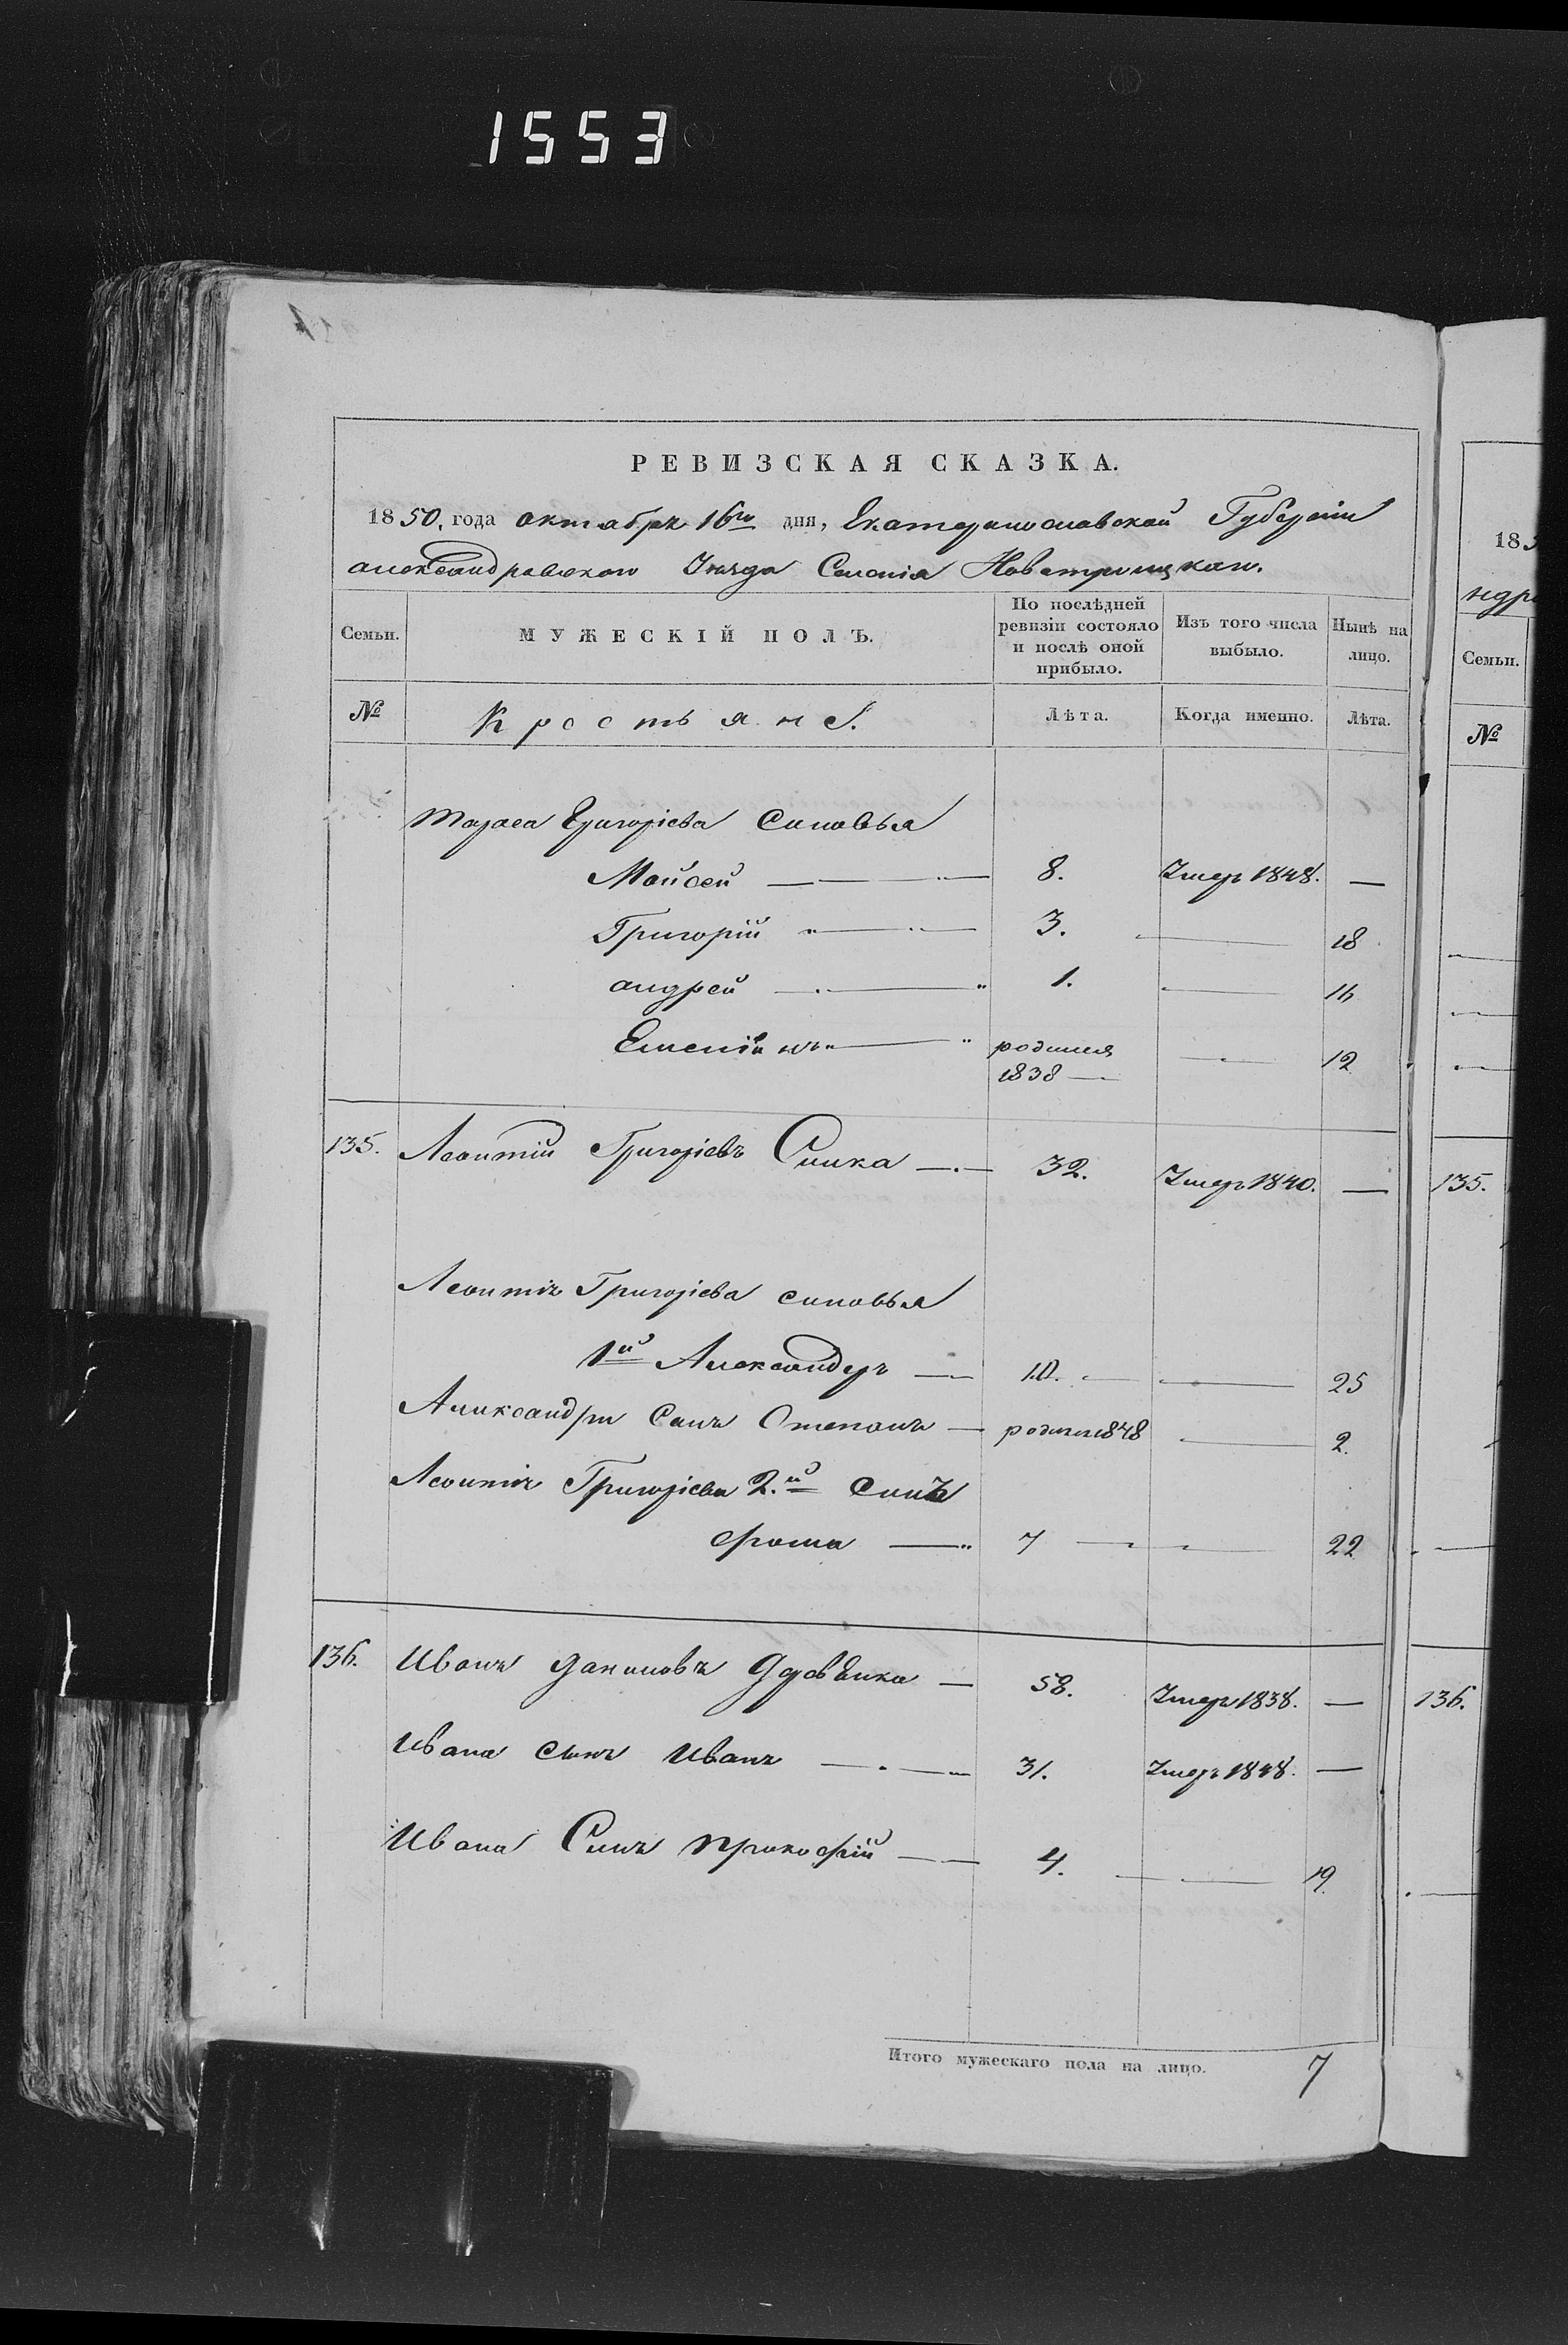 1553
РЕВИЗСКАЯ СКАЗКА.
1850, года октабря 16го дня, Екатеринославской Губерніи
александровскаго Уезда Селенія Новотроицкаго.
Семьи. МУЖЕСКІЙ ПОЛЪ. По послѣдней ревизіи состояло и послѣ оной прибыло. Изъ того числа выбыло. Нынѣ на лицо.
№ Крестьяне. Лѣта. Когда именно. Лѣта.
Тараса Григоріева синовья
Мойсей 8. Умеръ 1848. —
Григорій 3. — 18
андрей 1. — 16
родился
1838 — 12
135. Леонтій Григоріевъ 32. Умеръ 1840. —
Леонтія Григоріева синовья
1й Александръ 10. — 25
Александра Синъ Степанъ — родился 1848 — 2.
Леонтія Григоріева 2.й синъ
фома — 7 — 22
136. Иванъ 58. Умеръ 1838. —
Ивана сынъ Иванъ — 31. Умеръ 1848. —
Ивана Синъ прокофій — 4. — 19.
Итого мужескаго пола на лицо. 7
183
ндро
Семьи.
№
135.
136.